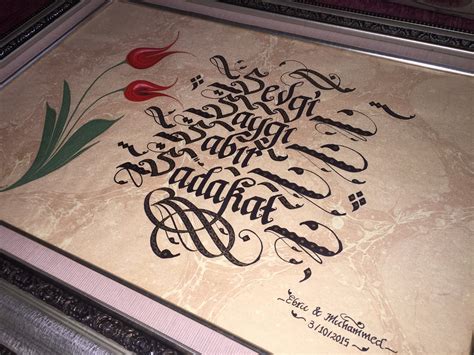 Sevgi
Saygı
Sabır
Sadakat
Ebru & Muhammed
3/10/2015